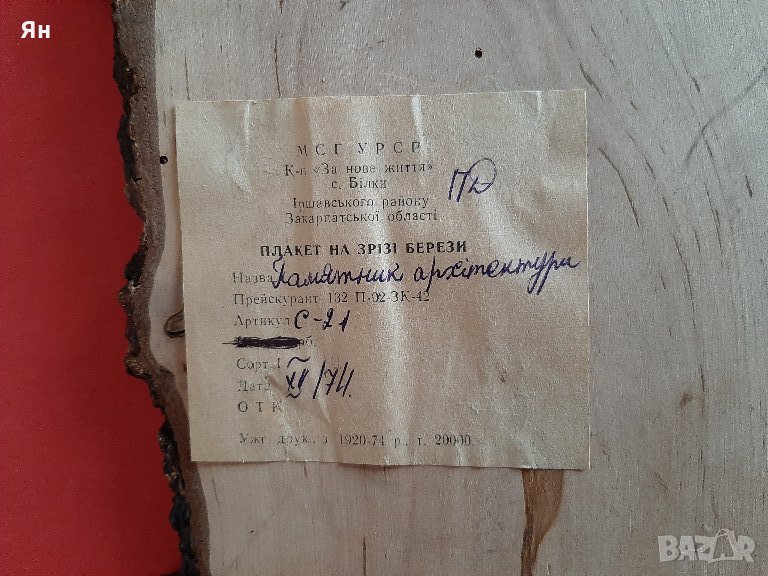 Ян
МСГ УРСР
К-п «За нове життя»
с. Білки
Іршавського району
Закарпатської області
ПД
ПЛАКЕТ НА ЗРІЗІ БЕРЕЗИ
Назва Памятник архітектури
Прейскурант 132 П-02-ЗК-42
Артикул С-21
рб.
Сорт I
Дата XII/74.
ОТК
Ужг. друк., з. 1920-74 р., т. 20000.
BAZAR